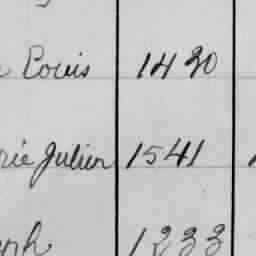 Louis 1420
rie Julien 1541
eph 1233